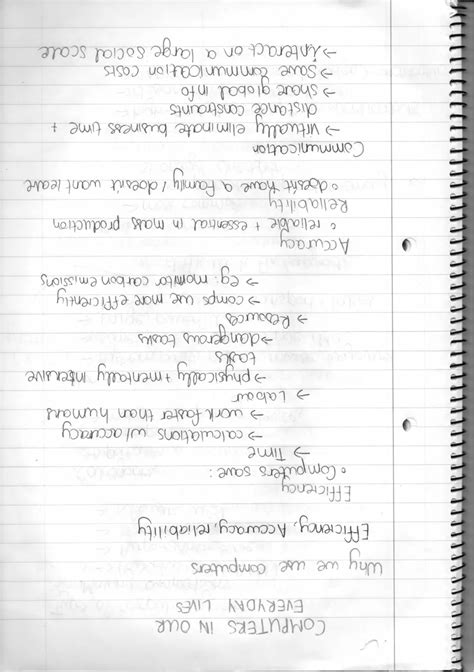 COMPUTERS IN OUR
EVERYDAY LIVES
Why we use computers
Efficiency, Accuracy, reliability
Efficiency
• Computers save:
→ Time
→ calculations w/accuracy
→ work faster than humans
→ Labour
→ physically + mentally intensive
tasks
→ dangerous tasks
→ Resources
→ comps use more efficiently
→ eg: monitor carbon emissions
Accuracy
• reliable + essential in mass production
Reliability
• doesn't have a family / doesn't want leave
Communication
→ virtually eliminate business time +
distance constraints
→ share global info
→ Save communication costs
→ interact on a large social scale